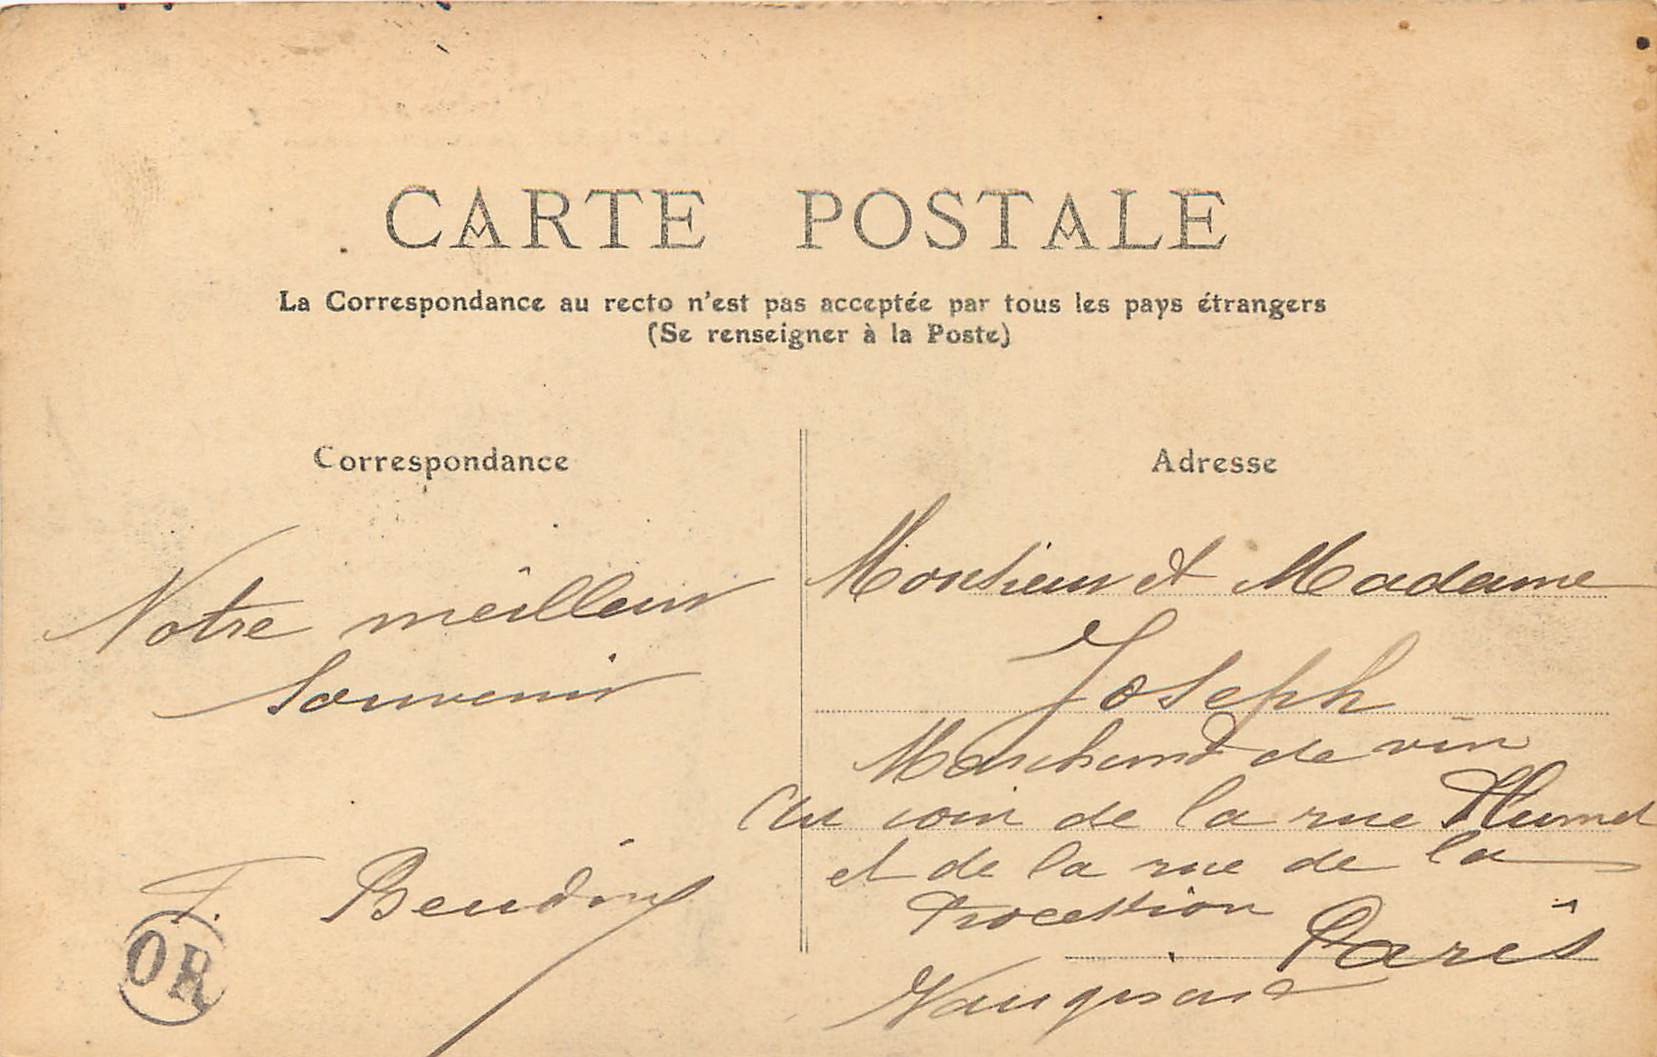 CARTE POSTALE
La Correspondance au recto n'est pas acceptée par tous les pays étrangers
(Se renseigner à la Poste)
Correspondance
Notre meilleur
Souvenir
F.
OR
Adresse
Monsieur et Madame
Joseph
Marchand de vin
Au coin de la rue Plumet
et de la rue de la
Procession
Paris
Vaugirard